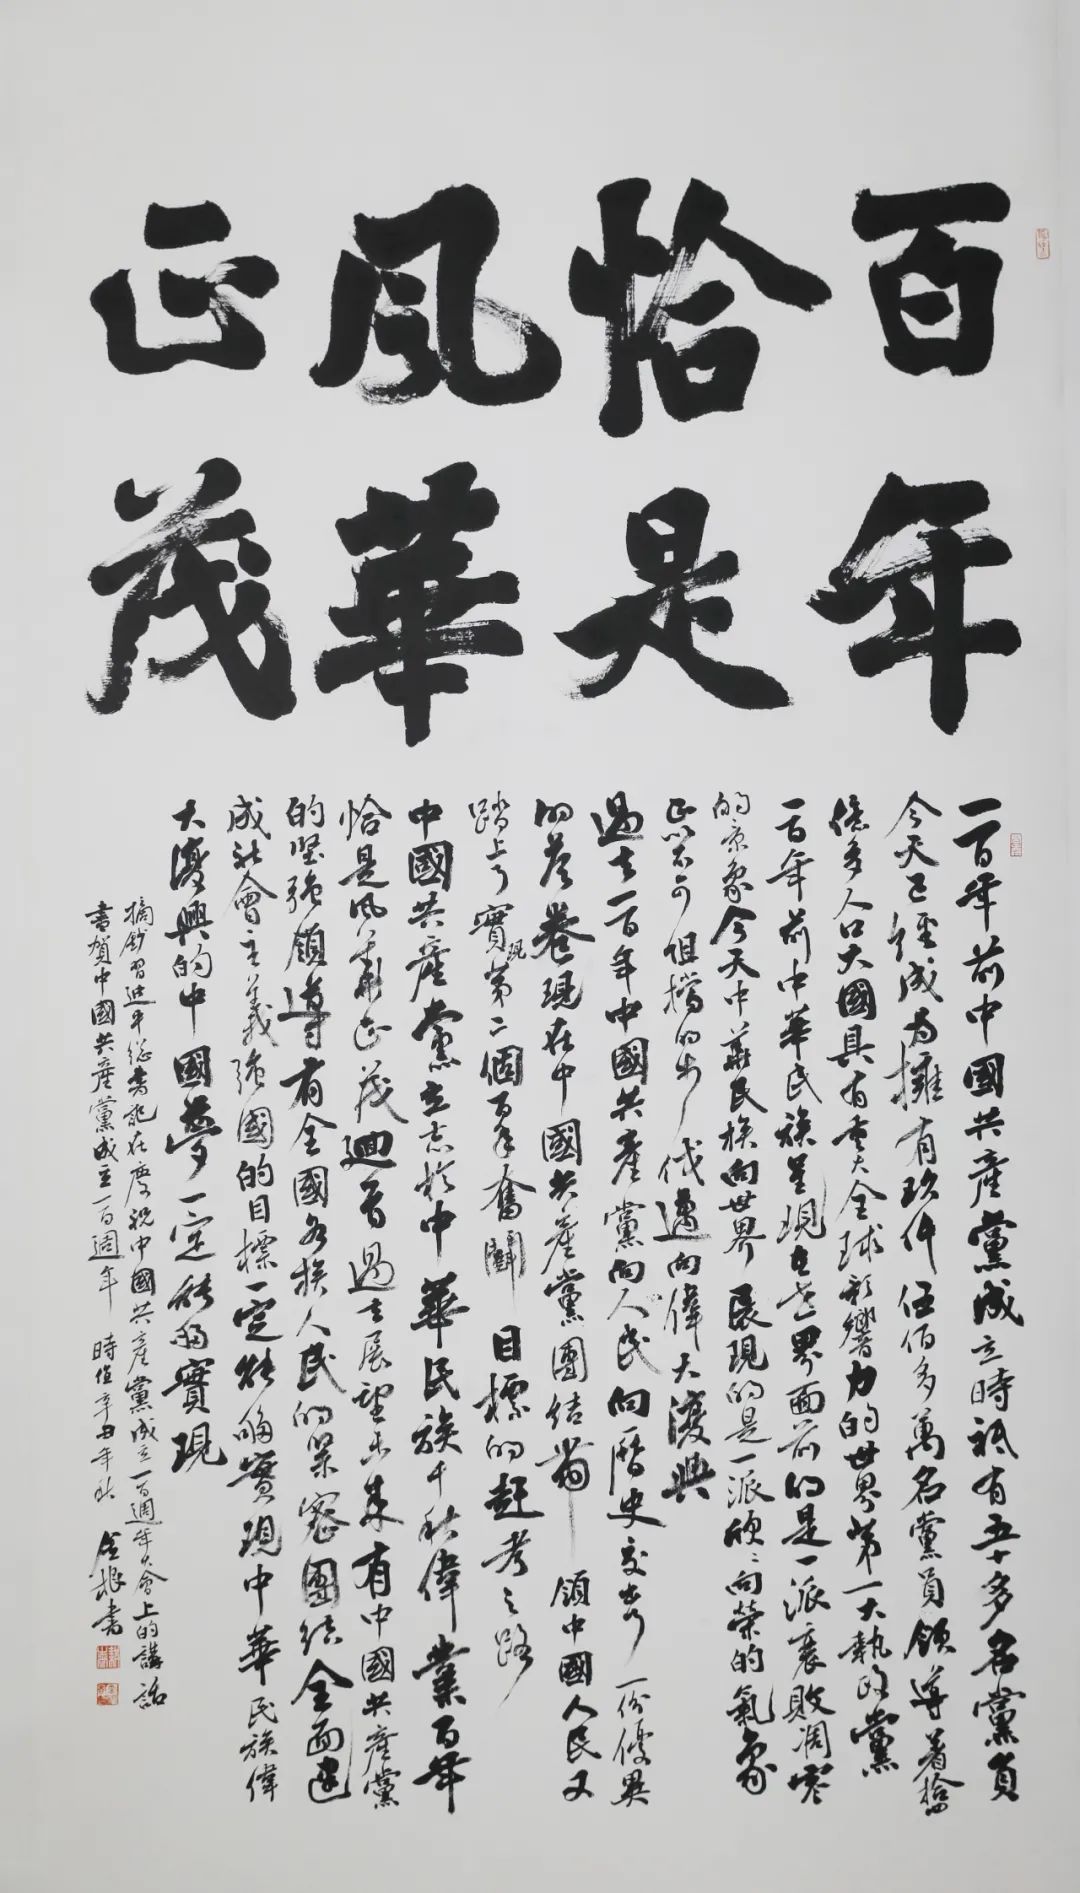 百年
恰是
風華
正茂
一百年前中國共產黨成立時祇有五十多名黨員
今天已經成為擁有玖仟伍佰多萬名黨員領導著拾四
億多人口大國具有重大全球影響力的世界第一大執政黨
一百年前中華民族呈現在世界面前的是一派衰敗凋零
的景象今天中華民族向世界展現的是一派欣欣向榮的氣象
正以不可阻擋的步伐邁向偉大復興
過去一百年中國共產黨向人民向歷史交出了一份優異
的答卷現在中國共產黨團結帶領中國人民又
踏上了實現第二個百年奮鬥目標的趕考之路
中國共產黨立志於中華民族千秋偉業百年
恰是風華正茂迴首過去展望未來有中國共產黨
的堅強領導有全國各族人民的緊密團結全面建
成社會主義強國的目標一定能夠實現中華民族偉
大復興的中國夢一定能夠實現
摘鈔習近平總書記在慶祝中國共產黨成立一百週年大會上的講話
書賀中國共產黨成立一百週年 時值辛丑年秋 金根書